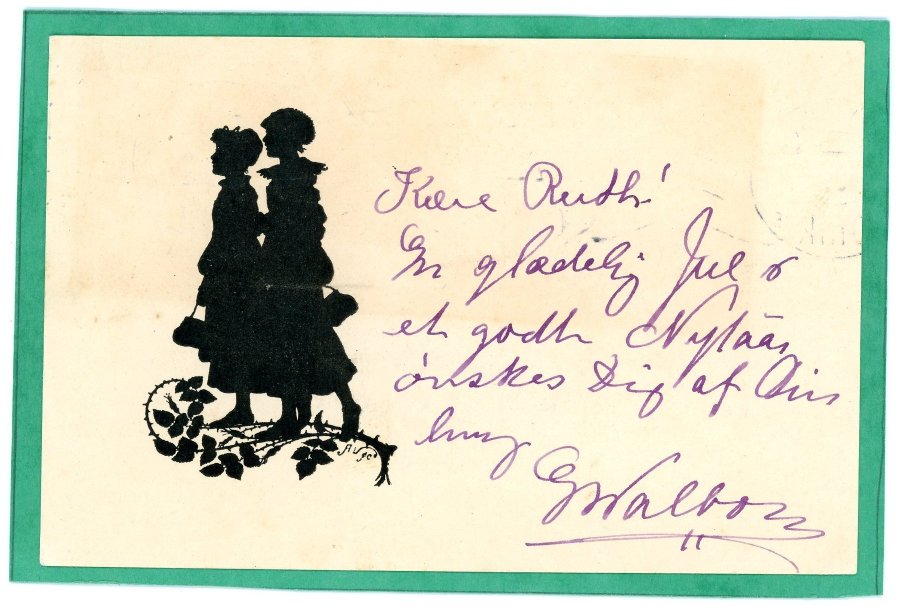 Kære Ruth!
En glædelig Jul o
et godt Nytaar
ønskes Dig af Din
G Walbom